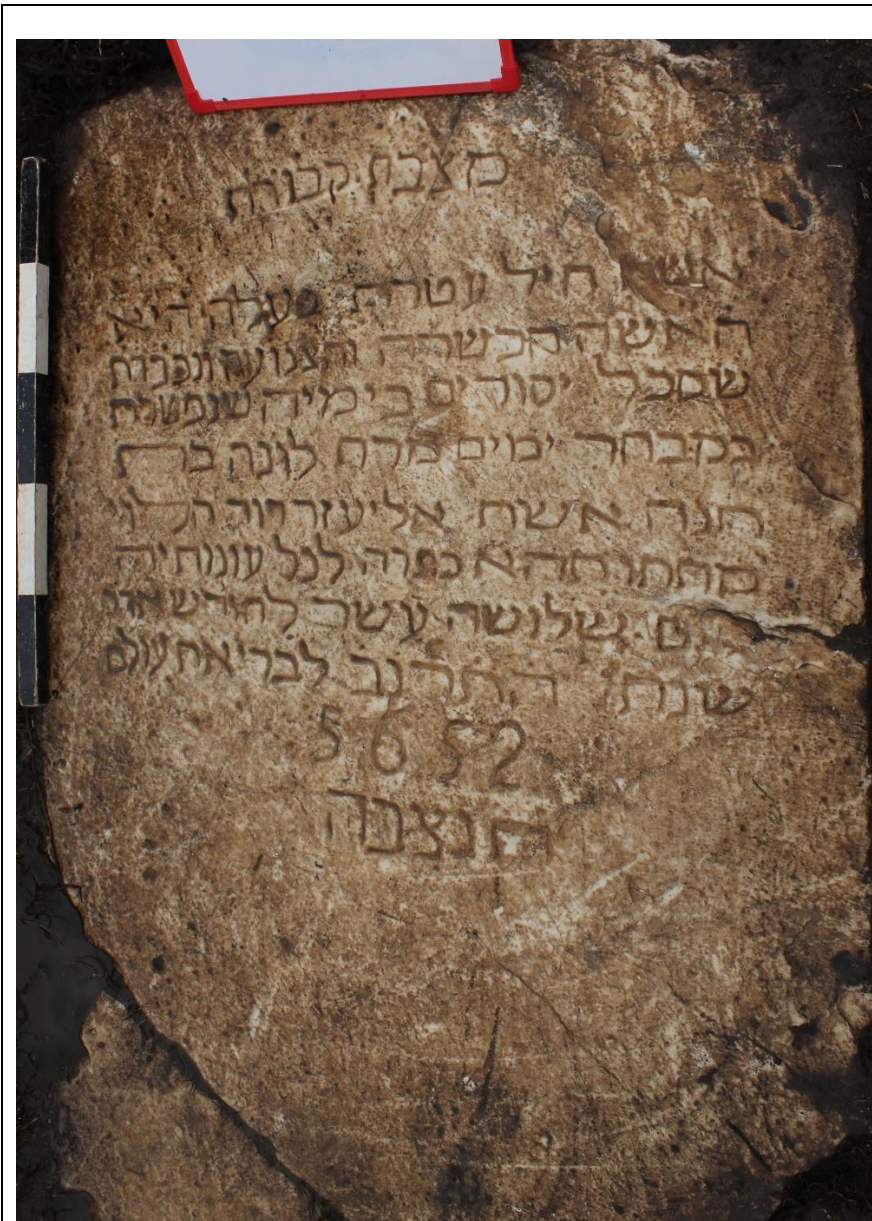 מצבת קבורת
אשת חיל עטרת בעלה היא
האשה הכשרה והצנועה ונכבדת
שסבל יסורים בימיה שנפטרת
במבחר ימים מרת לונה ברת
חנה אשת אליעזר דוד הלוי
מתתו תהא כפרה לכל עונותיה
שלושה עשר לחודש
שנת התרנב לבריאת עולם
5652
תנצבה